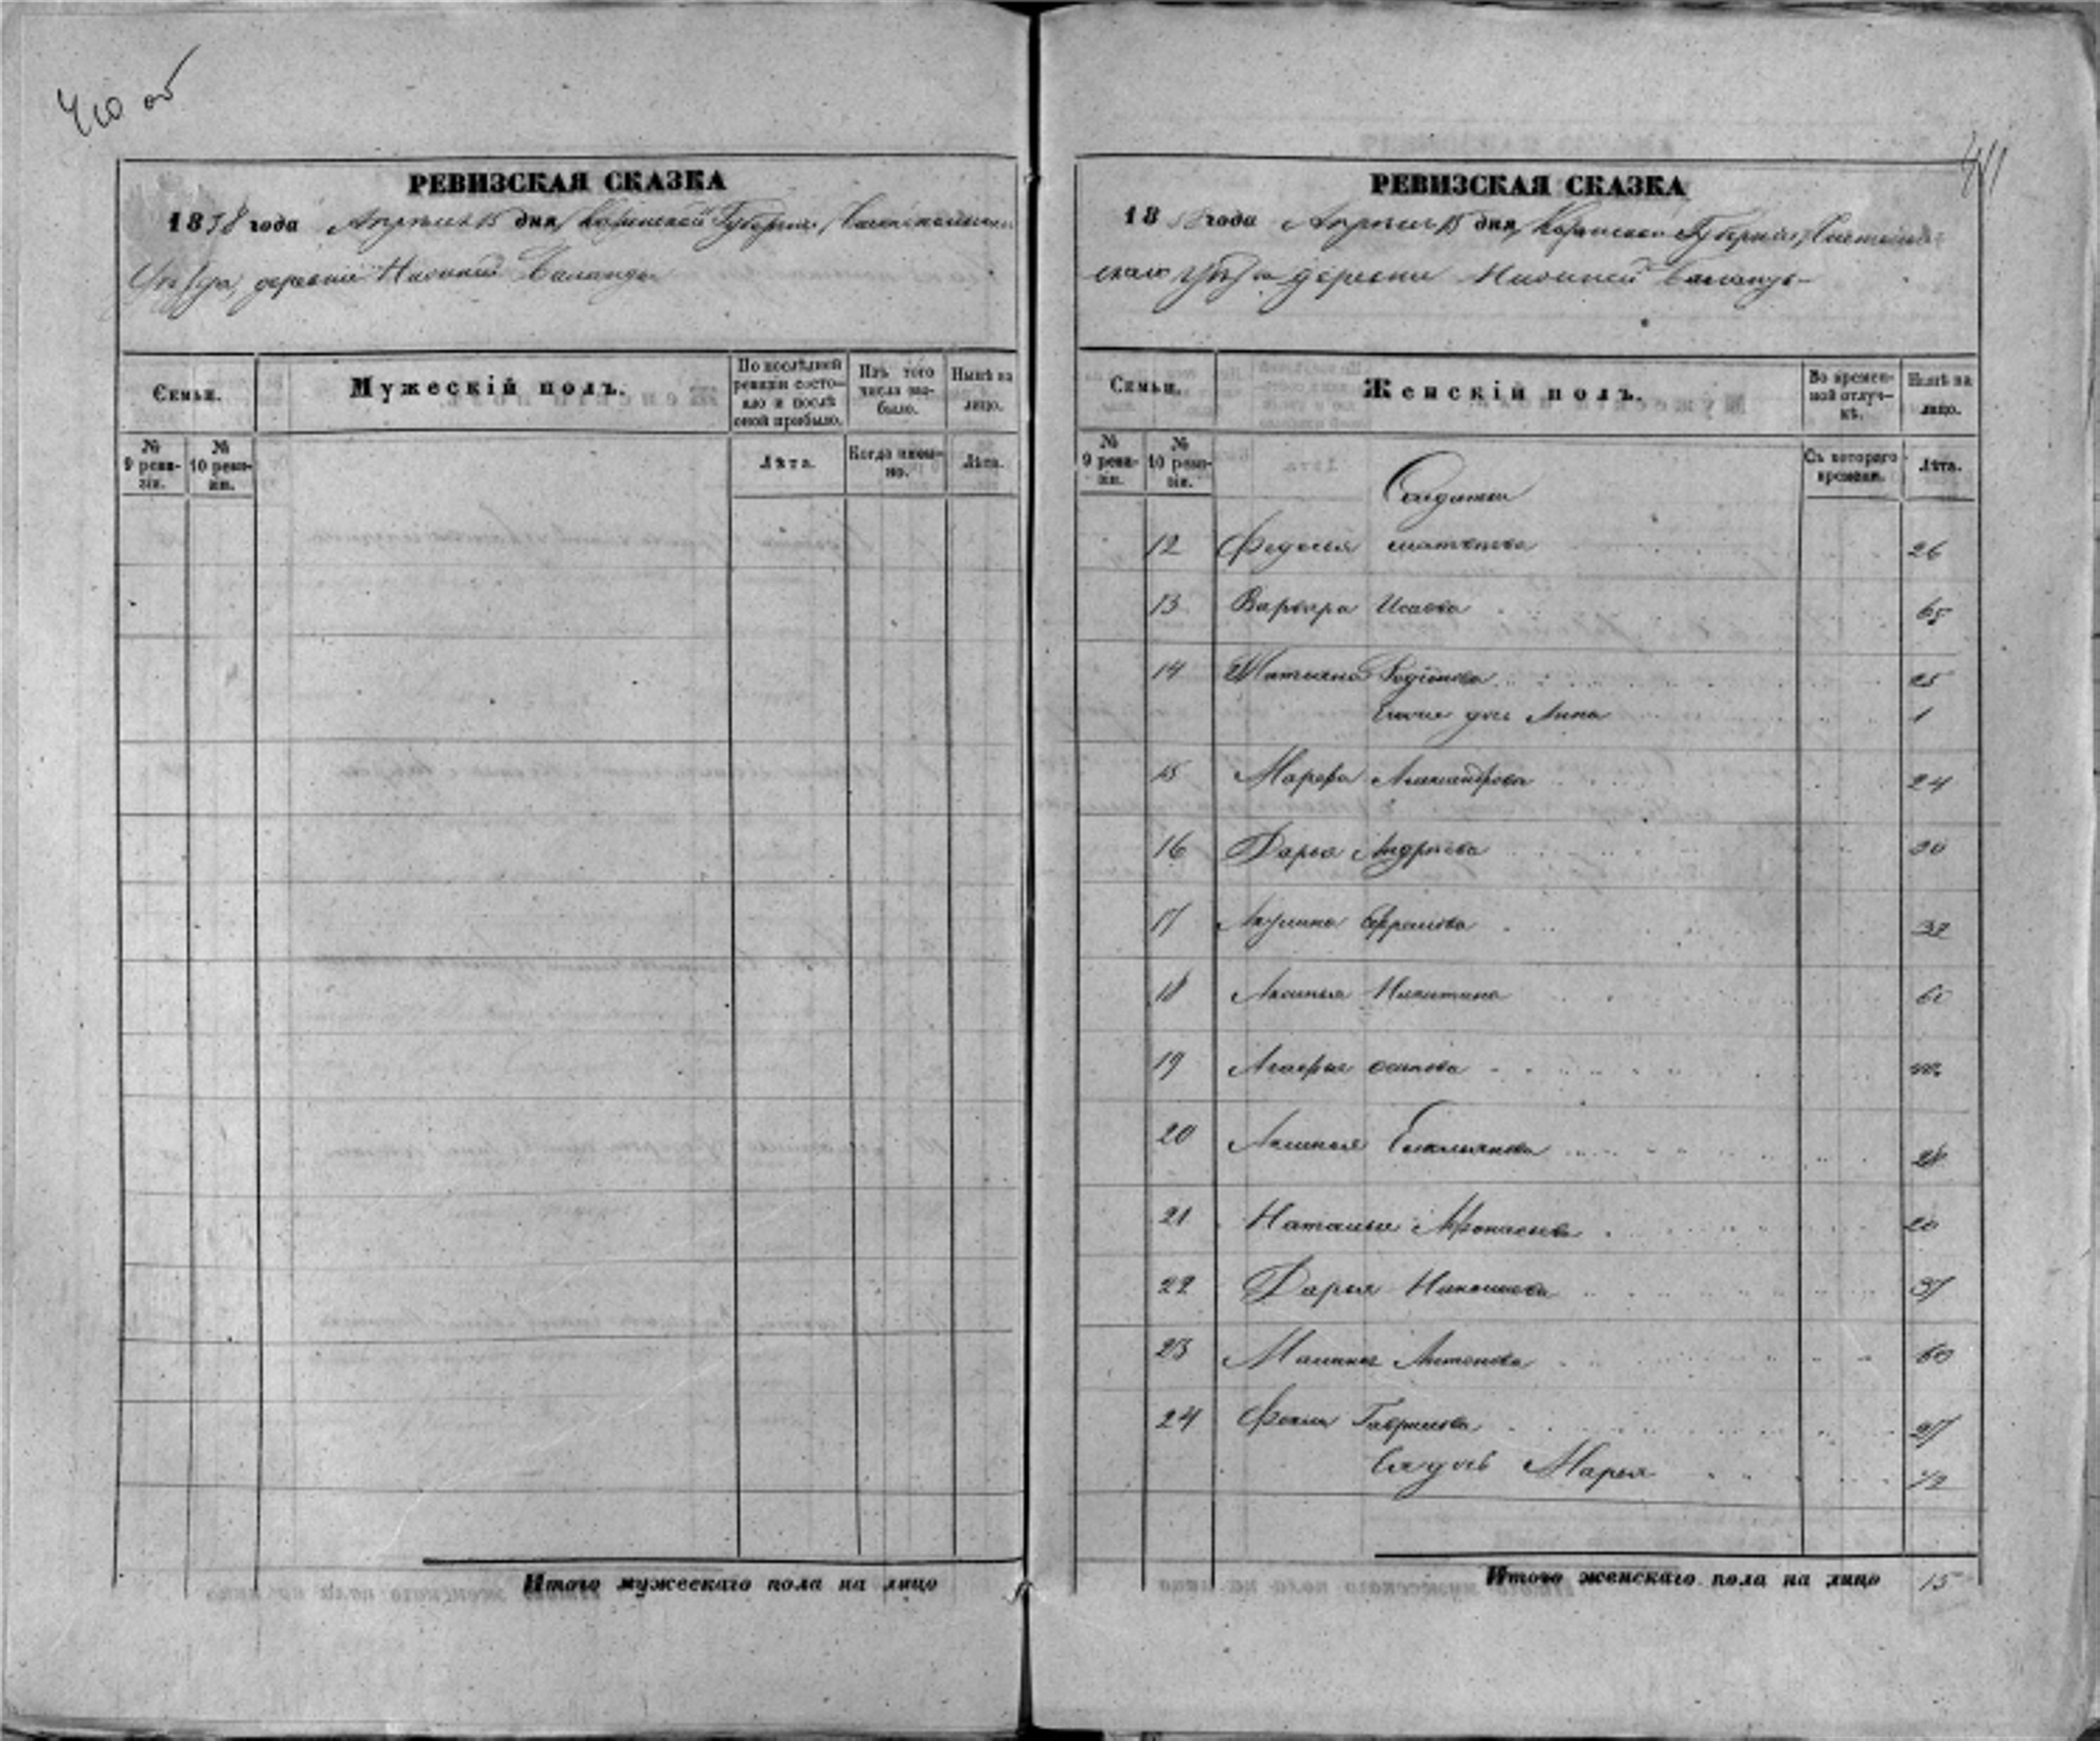 410 об
РЕВИЗСКАЯ СКАЗКА
1858 года Апреля 15 дня, Казанской Губернии,
Уезда, деревни Нижней Баланды
Семьи.
Мужескій полъ.
По послѣдней ревизіи состояло и послѣ оной прибыло.
Изъ того числа выбыло.
Нынѣ на лицо.
№ 9 ревизіи.
№ 10 ревизіи.
Лѣта.
Когда именно.
Лѣта.
Итого мужескаго пола на лицо
411
РЕВИЗСКАЯ СКАЗКА
1858 года Апреля 15 дня, Казанской Губернии,
ского Уезда деревни Нижней Баланды
Семьи.
Женскій полъ.
Во временной отлучкѣ.
Нынѣ на лицо.
№ 9 ревизіи.
№ 10 ревизіи.
Съ котораго времени.
Лѣта.
Солдатки
12 Федосья 26
13 Варвара Исаева 65
14 Татьяна Родіонова 25
дочь Анна 1
15 Марфа Александрова 24
16 Дарья Андреева 30
17 Акулина Ефремова 32
18 Аксинья Никитина 60
19 Агафья Осипова
20 Аксинья Емельянова 28
21 Наталья Афонасьева 20
22 Дарья Николаева 37
23 Антонова 60
24 Гаврилова 27
Ея дочь Марья 1/2
Итого женскаго пола на лицо 15